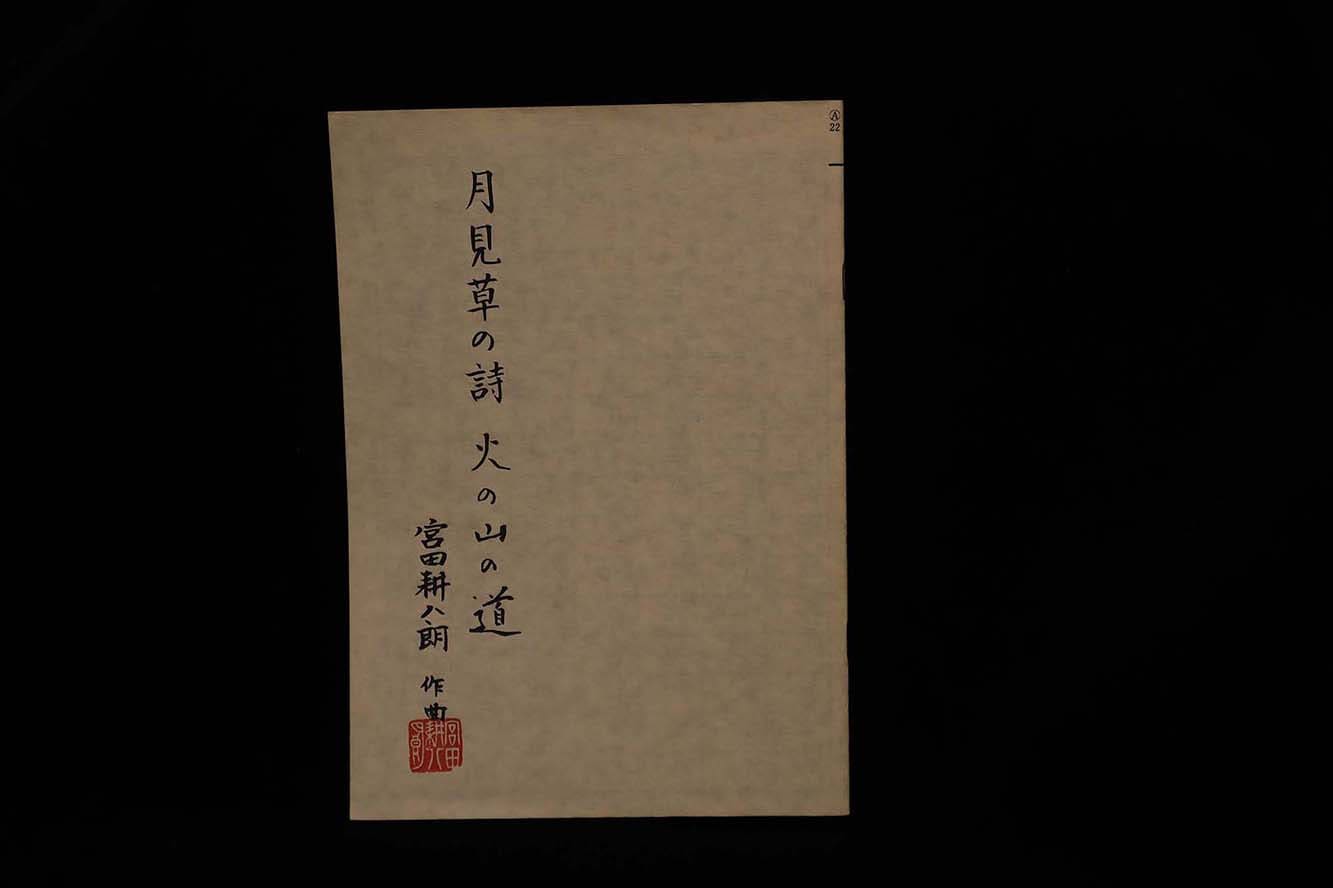 Ⓐ
22
月見草の詩 火の山の道
宮田耕八朗 作曲
宮田
耕八
朗